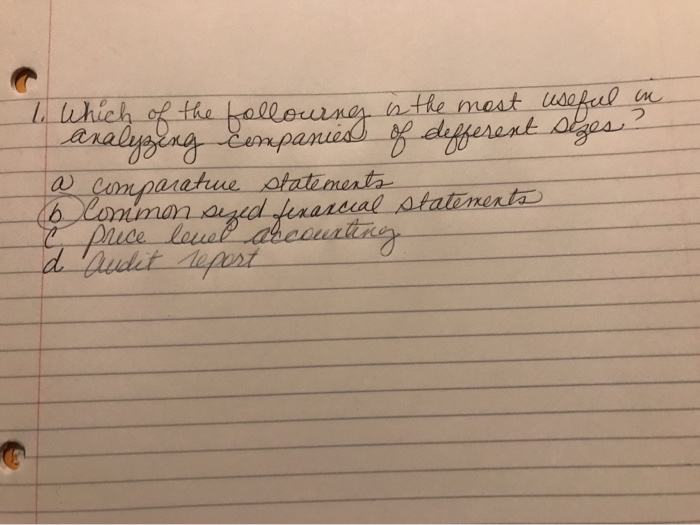 1. Which of the following is the most useful in
analyzing companies of different sizes?
a) comparative statements
b Common sized financial statements
c. price level accounting
d audit report